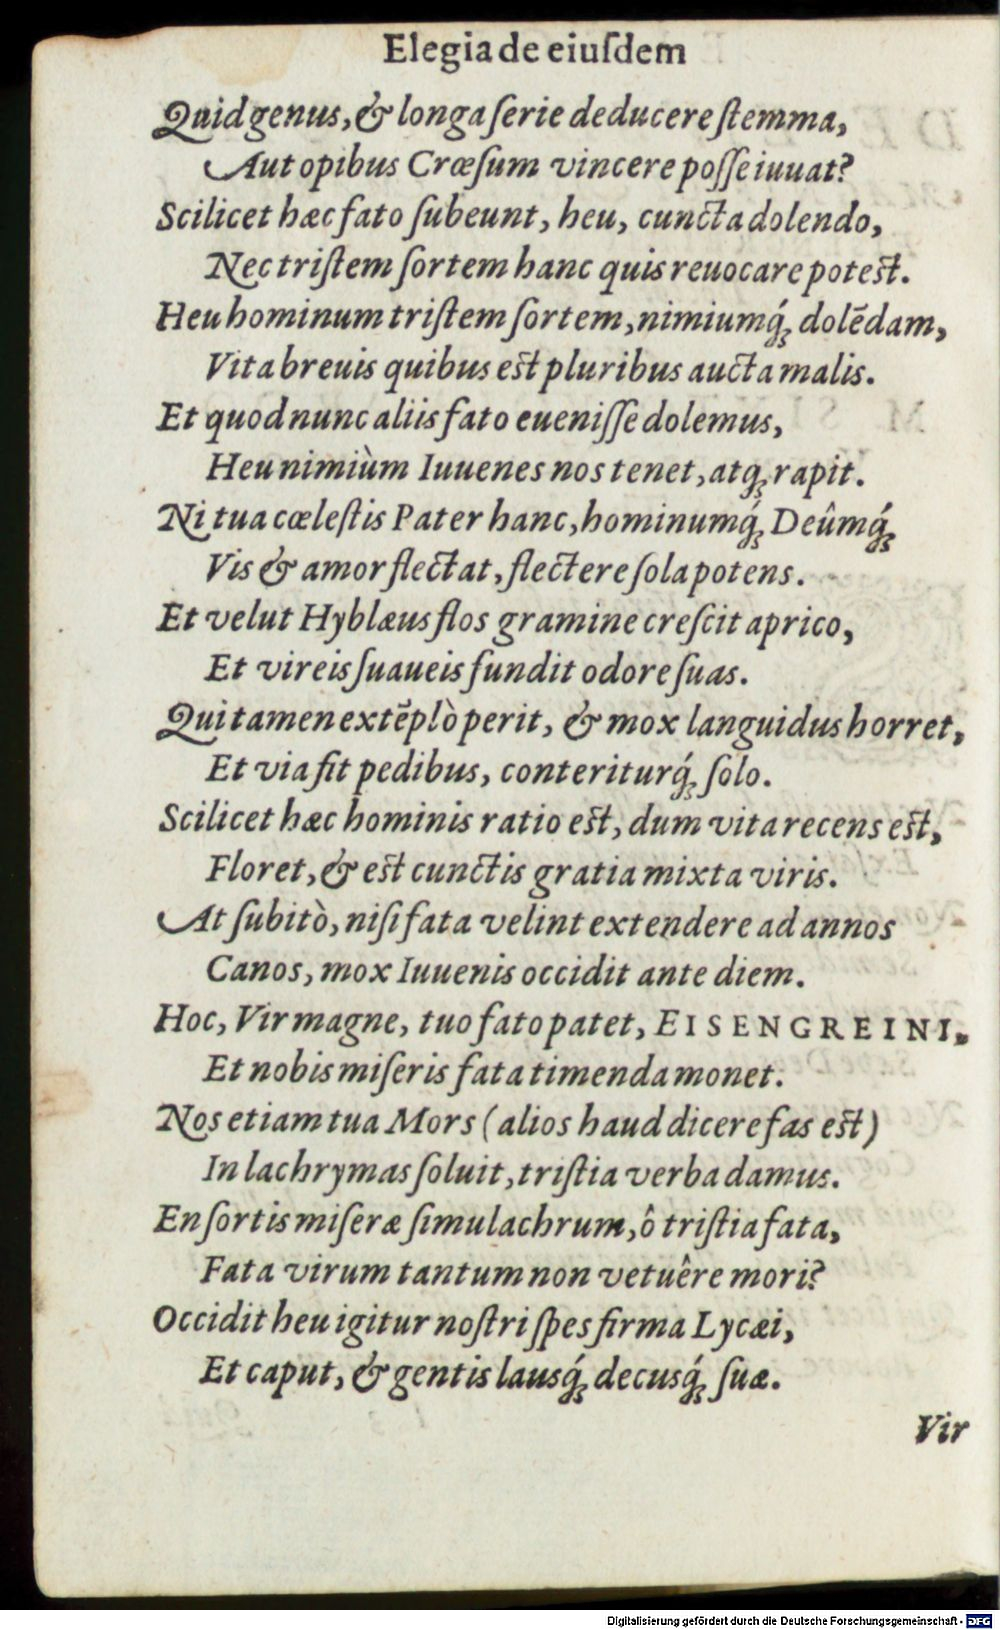 Elegia de eiuſdem
Quid genus, & longa ſerie deducere ſtemma,
Aut opibus Crœſum vincere poſſe iuuat?
Scilicet hæc fato ſubeunt, heu, cuncta dolendo,
Nec triſtem ſortem hanc quis reuocare poteſt.
Heu hominum triſtem ſortem, nimiumq́; dolẽdam,
Vita breuis quibus eſt pluribus aucta malis.
Et quod nunc aliis fato eueniſſe dolemus,
Heu nimiùm Iuuenes nos tenet, atq; rapit.
Ni tua cœleſtis Pater hanc, hominumq́; Deûmq́;
Vis & amor flectat, flectere ſola potens.
Et velut Hyblæus flos gramine creſcit aprico,
Et vireis ſuaueis fundit odore ſuas.
Qui tamen extẽplò perit, & mox languidus horret,
Et via fit pedibus, conteriturq́; ſolo.
Scilicet hæc hominis ratio eſt, dum vita recens eſt,
Floret, & eſt cunctis gratia mixta viris.
At ſubitò, niſi fata velint extendere ad annos
Canos, mox Iuuenis occidit ante diem.
Hoc, Vir magne, tuo fato patet, EISENGREINI,
Et nobis miſeris fata timenda monet.
Nos etiam tua Mors (alios haud dicere fas eſt)
In lachrymas ſoluit, triſtia verba damus.
En ſortis miſeræ ſimulachrum, ô triſtia fata,
Fata virum tantum non vetuêre mori?
Occidit heu igitur noſtri ſpes firma Lycæi,
Et caput, & gentis lausq́; decusq́; ſuæ.
Vir
Digitalisierung gefördert durch die Deutsche Forschungsgemeinschaft - DFG